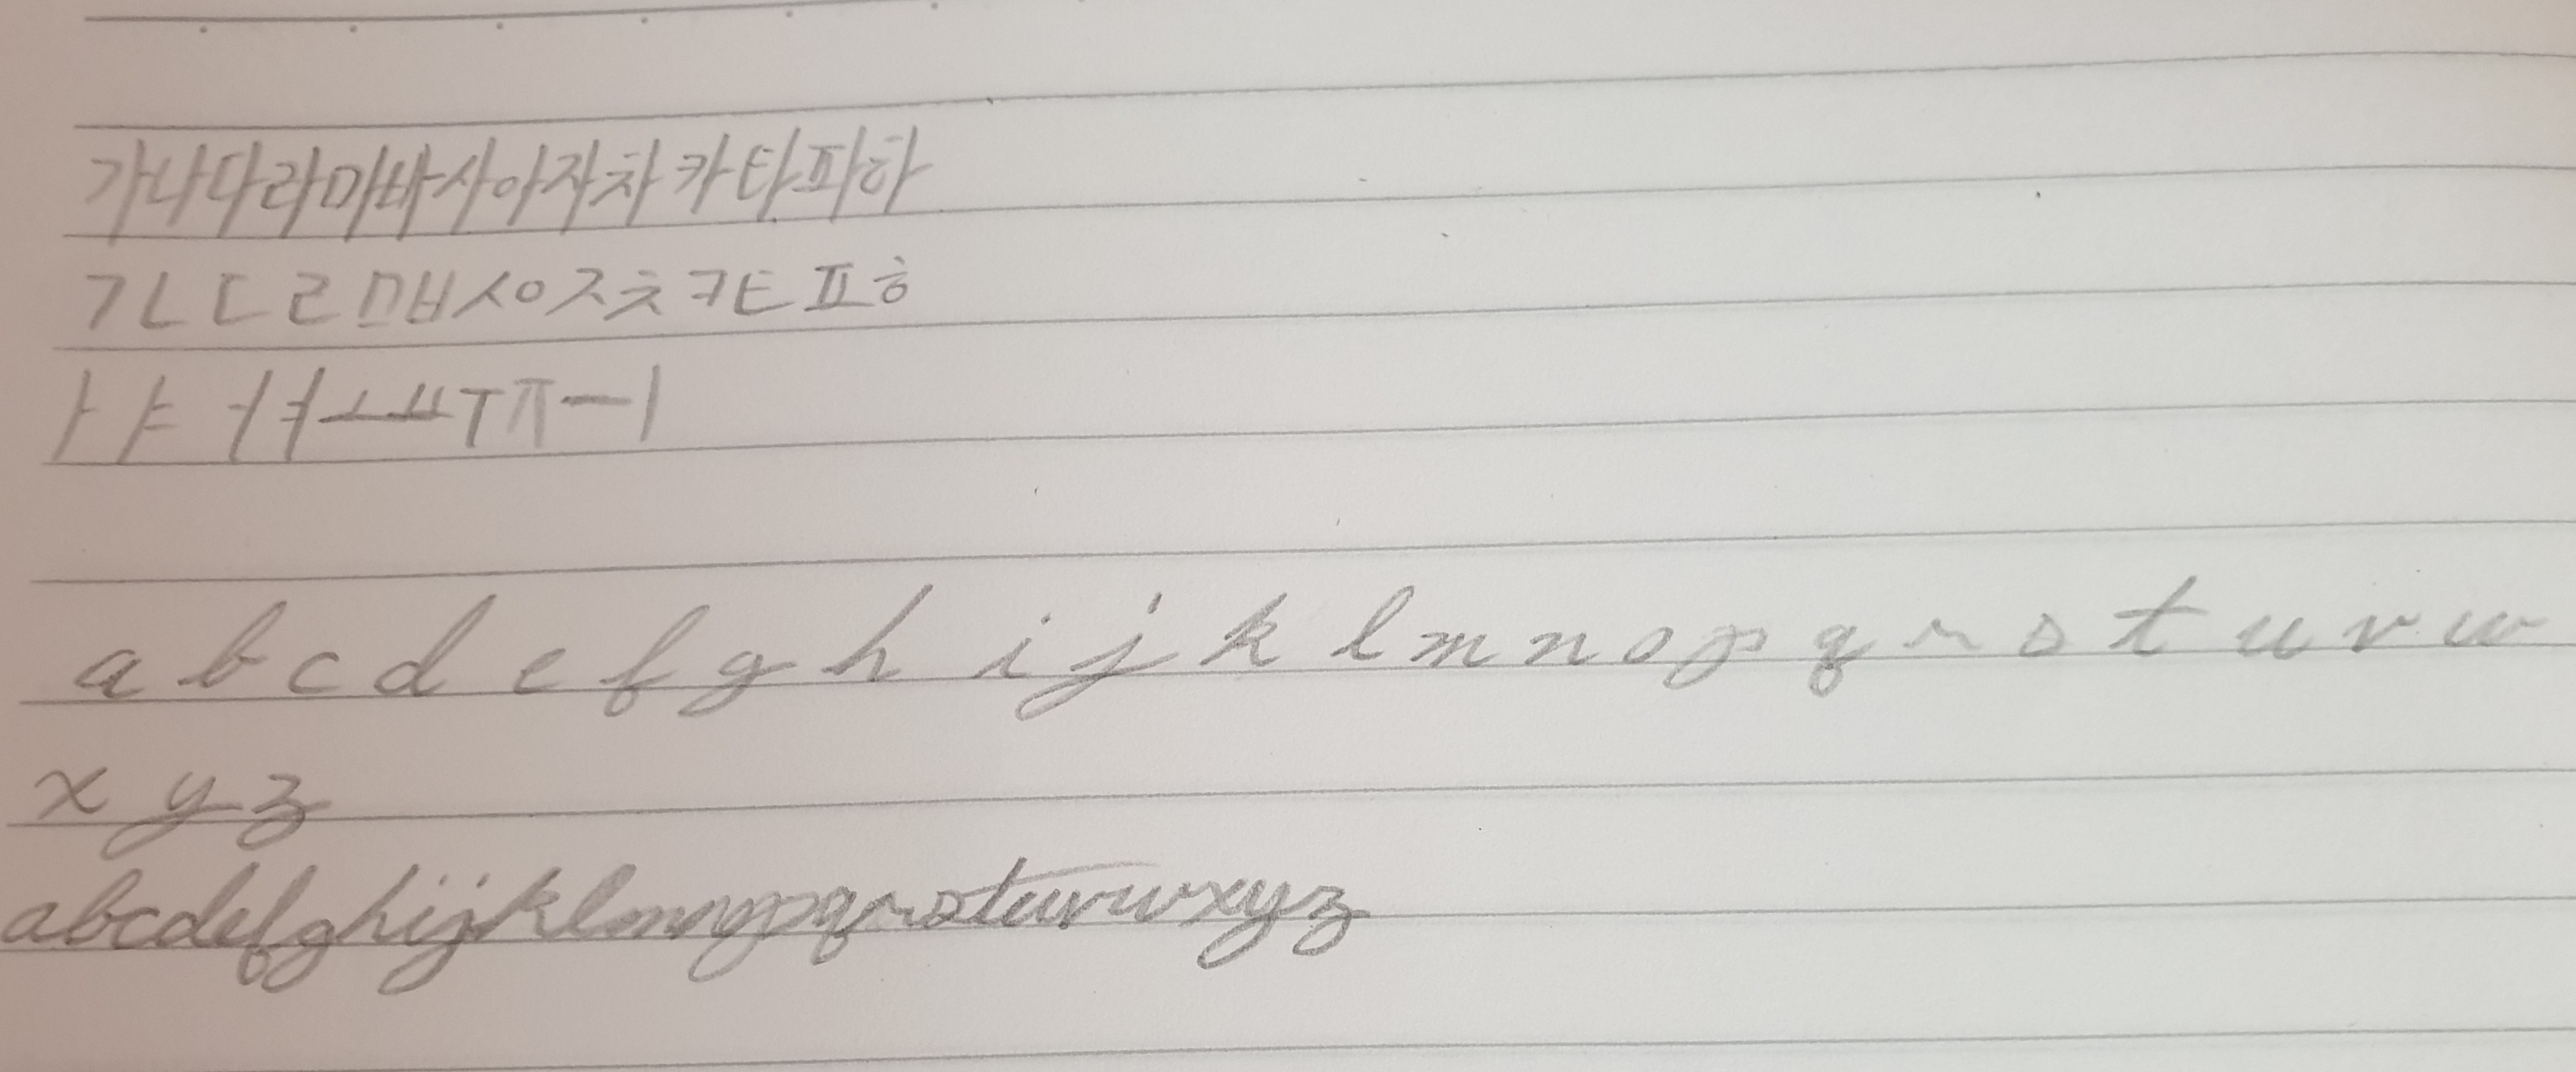 가나다라마바사아자차카타파하
ㄱㄴㄷㄹㅁㅂㅅㅇㅈㅊㅋㅌㅍㅎ
ㅏㅑㅓㅕㅗㅛㅜㅠㅡㅣ
a b c d e f g h i j k l m n o p q r s t u v w
x y z
abcdefghijklmnopqrstuvwxyz